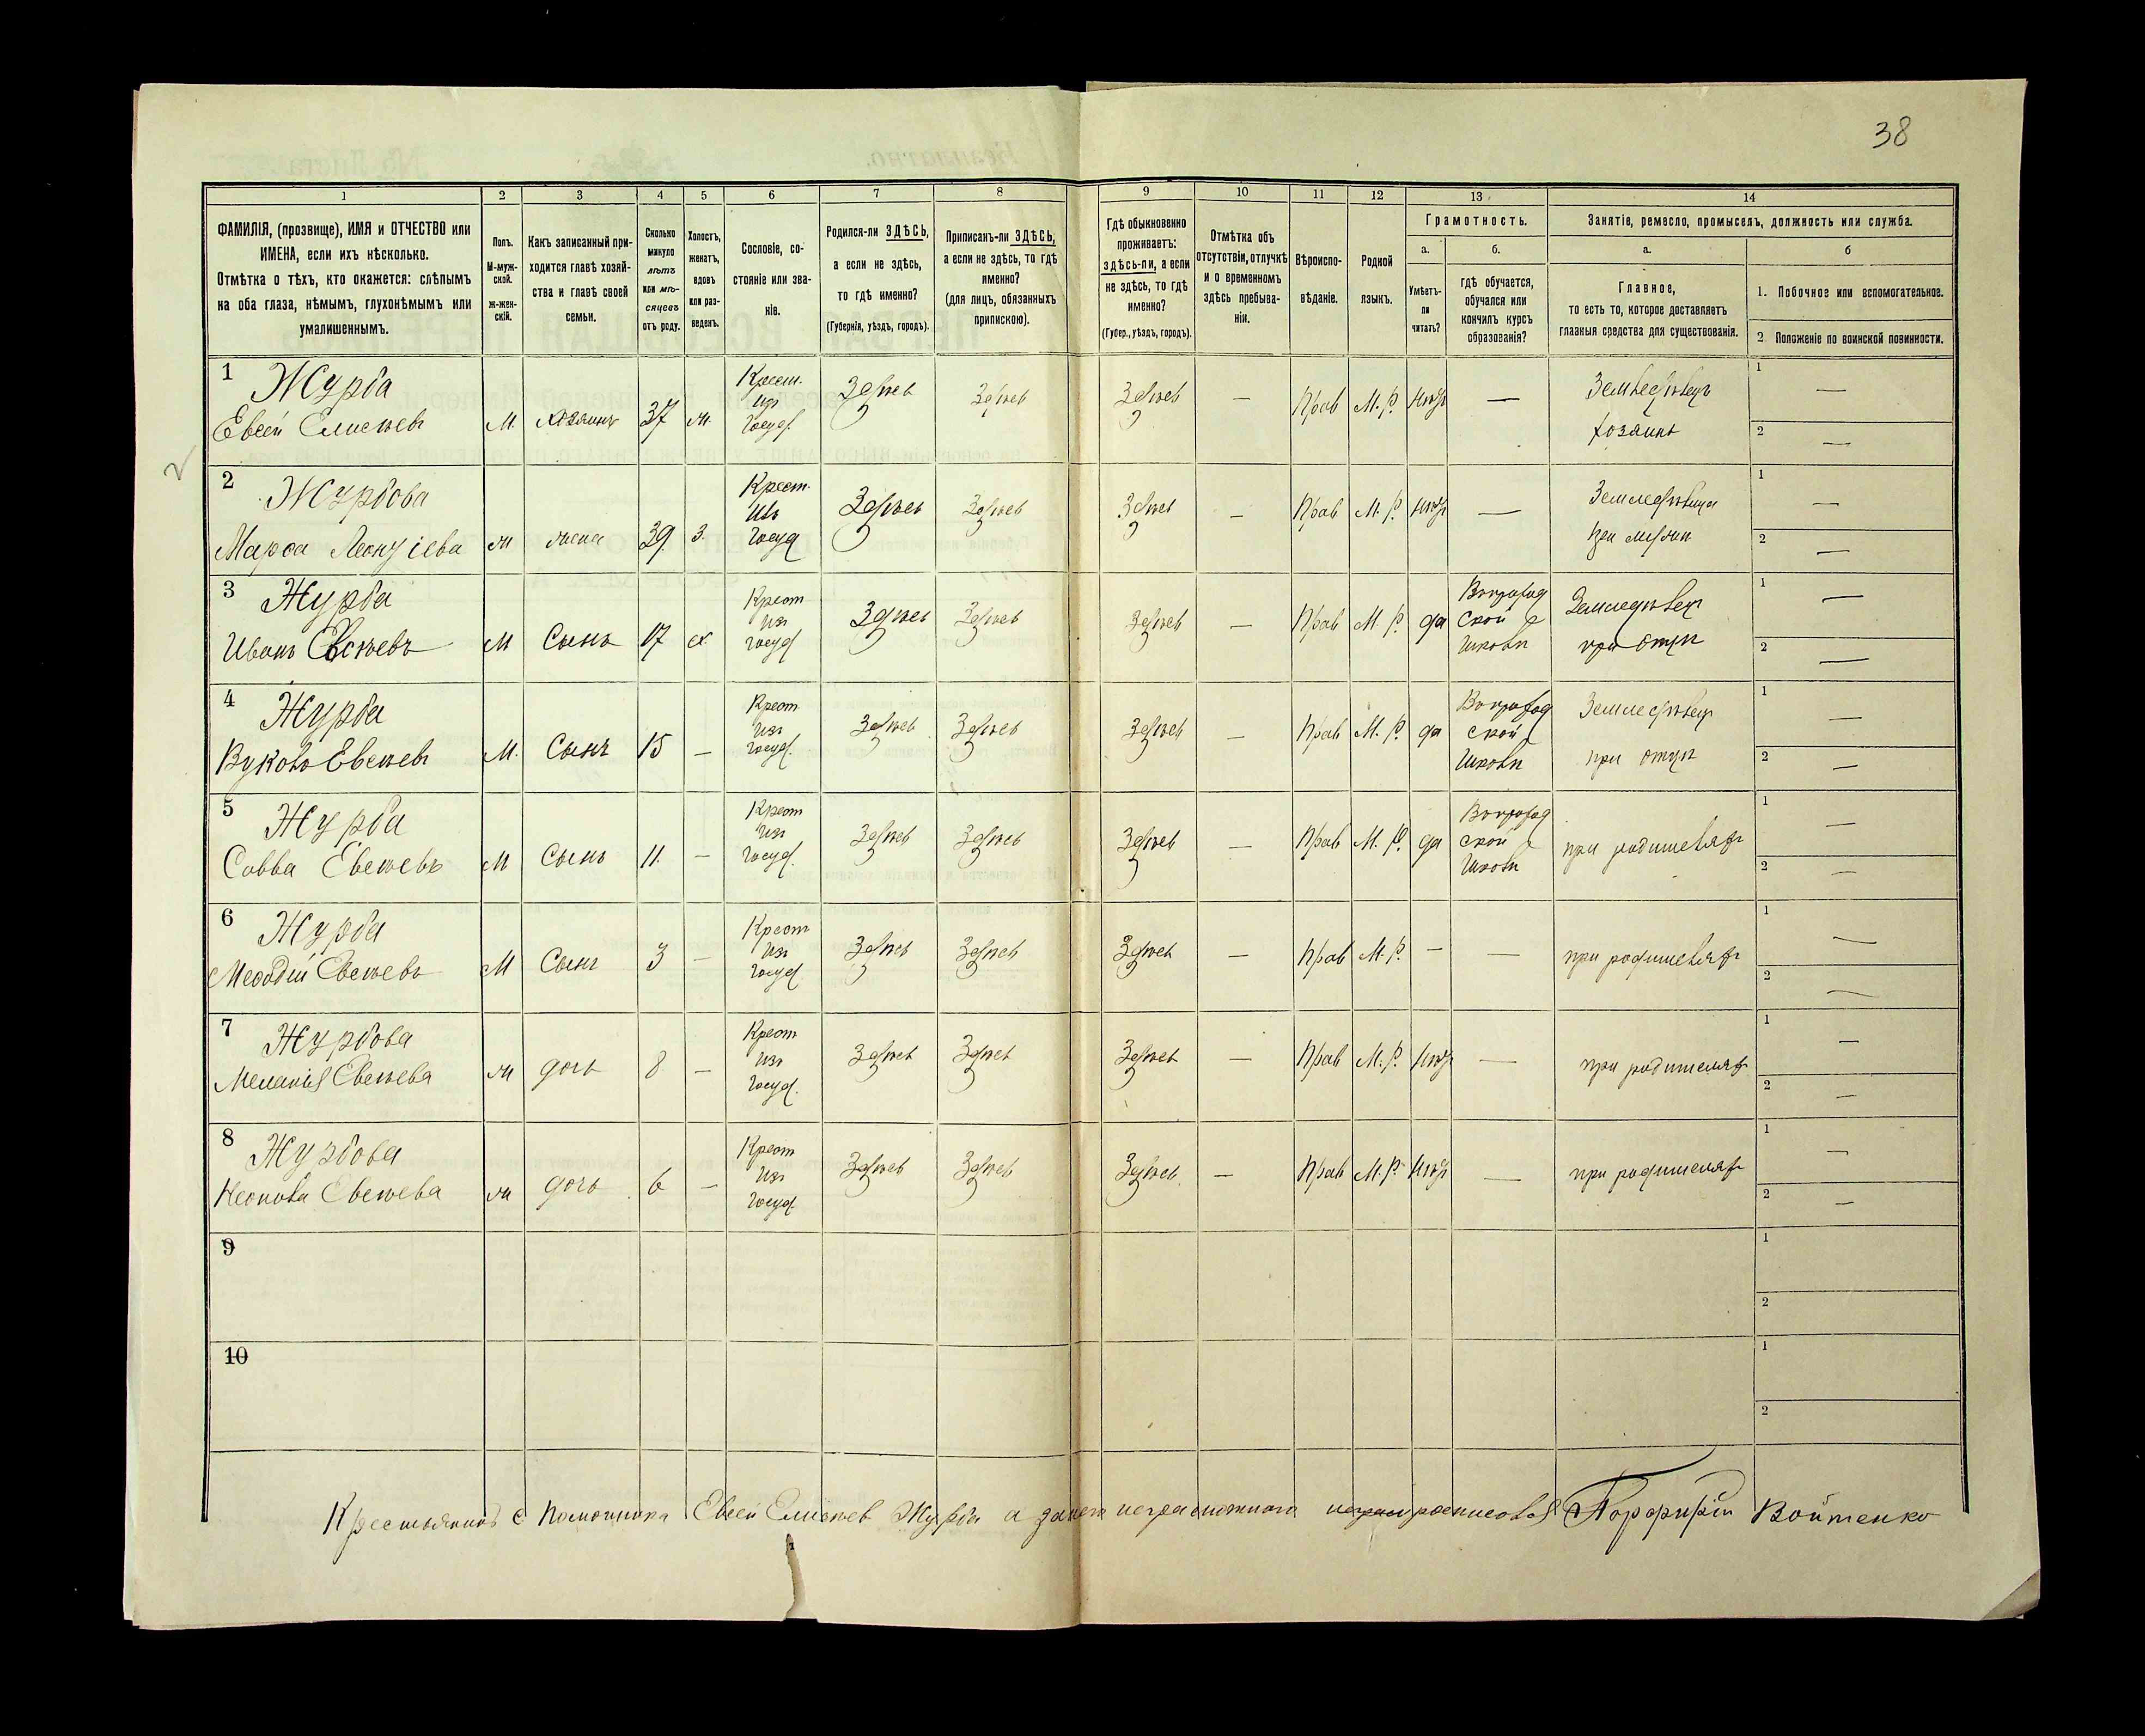 38
1
2
3
4
5
6
7
8
9
10
11
12
13
14
ФАМИЛІЯ, (прозвище), ИМЯ и ОТЧЕСТВО или
ИМЕНА, если ихъ нѣсколько.
Отмѣтка о тѣхъ, кто окажется: слѣпымъ
на оба глаза, нѣмымъ, глухонѣмымъ или
умалишеннымъ.
Полъ.
М-муж-
ской.
ж-жен-
скій.
Какъ записанный при-
ходится главѣ хозяй-
ства и главѣ своей
семьи.
Сколько
минуло
лѣтъ
или мѣ-
сяцевъ
отъ роду.
Холостъ,
женатъ,
вдовъ
или раз-
веденъ.
Сословіе, со-
стояніе или зва-
ніе.
Родился-ли ЗДѢСЬ,
а если не здѣсь,
то гдѣ именно?
(Губернія, уѣздъ, городъ).
Приписанъ-ли ЗДѢСЬ,
а если не здѣсь, то гдѣ
именно?
(для лицъ, обязанныхъ
припискою).
Гдѣ обыкновенно
проживаетъ:
здѣсь-ли, а если
не здѣсь, то гдѣ
именно?
(Губер., уѣздъ, городъ).
Отмѣтка объ
отсутствіи, отлучкѣ
и о временномъ
здѣсь пребыва-
ніи.
Вѣроиспо-
вѣданіе.
Родной
языкъ.
Грамотность.
а.
Умѣетъ-
ли
читать?
б.
гдѣ обучается,
обучался или
кончилъ курсъ
образованія?
Занятіе, ремесло, промыселъ, должность или служба.
а.
Главное,
то есть то, которое доставляетъ
главныя средства для существованія.
б
1. Побочное или вспомогательное.
2 Положеніе по воинской повинности.
1 Журба
Евсей Елисеевъ М. хозяинъ 37 ж. Крест. изъ госуд. Здѣсь Здѣсь Здѣсь — Прав М. Р. нѣтъ — Земледѣлецъ хозяинъ 1 — 2 —
2 Журбова
Марѳа ж жена 39 з. Крест. изъ госуд Здѣсь Здѣсь Здѣсь — Прав М. Р. нѣтъ — 1 — 2 —
3 Журба
Иванъ Евсѣевъ М Сынъ 17 х Крест изъ госуд Здѣсь Здѣсь Здѣсь — Прав М. Р. да ской Земледѣлецъ при отцѣ 1 — 2 —
4 Журба
Евсеевъ М. Сынъ 15 — Крест изъ госуд. Здѣсь Здѣсь Здѣсь — Прав М. Р. да ской Земледѣлецъ при отцѣ 1 — 2 —
5 Журба
Савва Евсеевъ М Сынъ 11. — Крест изъ госуд. Здѣсь Здѣсь Здѣсь — Прав М. Р. да ской при родителяхъ 1 — 2 —
6 Журба
Меѳодій Евсеевъ М Сынъ 3 — Крест изъ госуд. Здѣсь Здѣсь Здѣсь — Прав М. Р. — — при родителяхъ 1 — 2 —
7 Журбова
Меланія Евсеева ж дочь 8 — Крест изъ госуд. Здѣсь Здѣсь Здѣсь — Прав М. Р. нѣтъ — при родителяхъ 1 — 2 —
8 Журбова
Евсеева ж дочь 6 — Крест изъ госуд. Здѣсь Здѣсь Здѣсь — Прав М. Р. нѣтъ — при родителяхъ 1 — 2 —
9
1
2
10
1
2
Крестьянинъ с Евсей Елисеев Журба а за него неграмотнаго росписовся Порфирій Войтенко